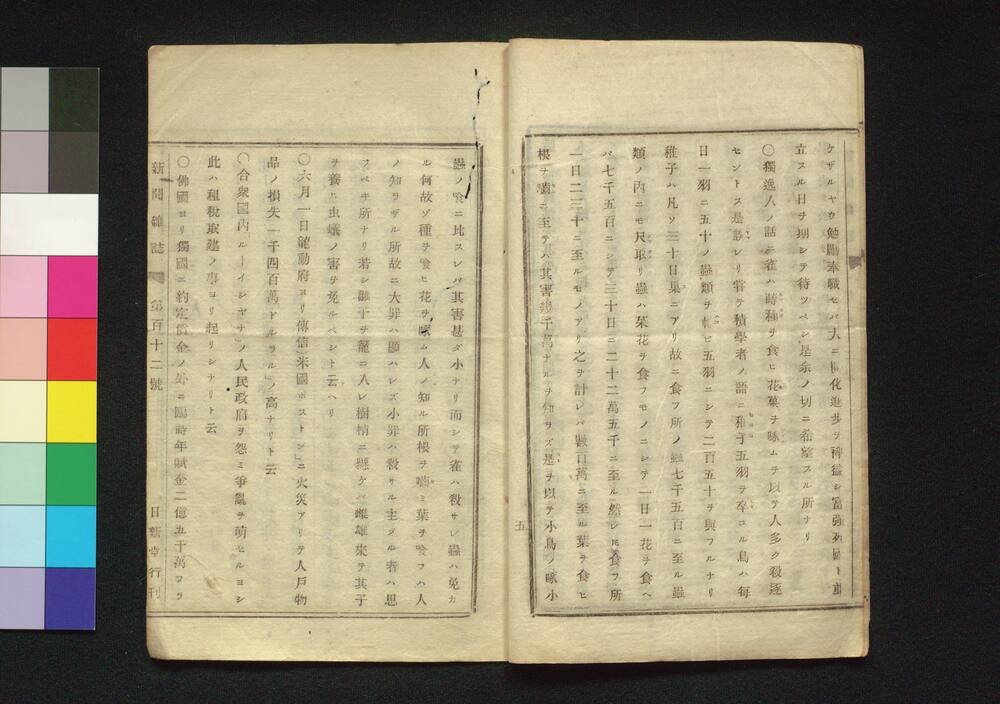 ケザルヤカ勉勵奉職セバ大ニ開化進歩ヲ裨益シ富強列國ト並
立スル日ヲ期シテ待ツベシ是余ノ切ニ希望スル所ナリ
〇獨逸人ノ話ニ雀ハ蒔種ヲ食ヒ花菓ヲ啄ムヲ以テ人多ク殺逐
セントス是誤レリ嘗テ積學者ノ語ニ稚子五羽ヲ卒ユル鳥ハ每
日一羽ニ五十ノ蟲類ヲ
ヒ五羽ニシテ二百五十ヲ與フルナリ
稚子ハ凡ソ三十日巢ニアリ故ニ食フ所ノ蟲七千五百ニ至ル蟲
類ノ內ニモ尺取リ蟲ハ菜花ヲ食フモノニシテ一日一花ヲ食ヘ
バ七千五百ニシテ三十日ニ二十二萬五千ニ至ル然シ
食フ所
一日二三十ニ至ルモノアリ之ヲ計レバ數百萬ニ至ル葉ヲ食ヒ
根ヲ嚙ニ至テハ其害幾千萬ナルヲ知ラズ是ヲ以テ小鳥ノ啄小
五
蟲ノ喰ニ比スレバ其害甚ダ小ナリ而シテ雀ハ殺サレ蟲ハ免カ
ル何故ゾ種ヲ喰ヒ花ヲ啄ム人ノ知ル所根ヲ嚙ミ葉ヲ喰フハ人
ノ知ラザル所故ニ大罪ハ顯ハレズ小罪ハ殺サル主タル者ハ思
フベキ所ナリ若シ雛子ヲ籠ニ入レ樹梢ニ懸ケバ雌雄來テ其子
ヲ養ヒ虫蟻ノ害ヲ免ルベシト云ヘリ
〇六月一日龍動府ヨリ傳信)米國ボストン」ニ火災アリテ人戶物
品ノ損失一千四百萬ドルラル」ノ高ナリト云
〇合衆國內ルーイシヤナ」ノ人民政府ヲ怨ミ爭亂ヲ萌セルヨシ
此ハ租稅取建ノ事ヨリ起リシナリト云
〇佛國ヨリ獨國ニ約定償金ノ外ニ臨時年賦金二億五千萬フラ
新聞雜誌 第百十二號 日新堂行刊